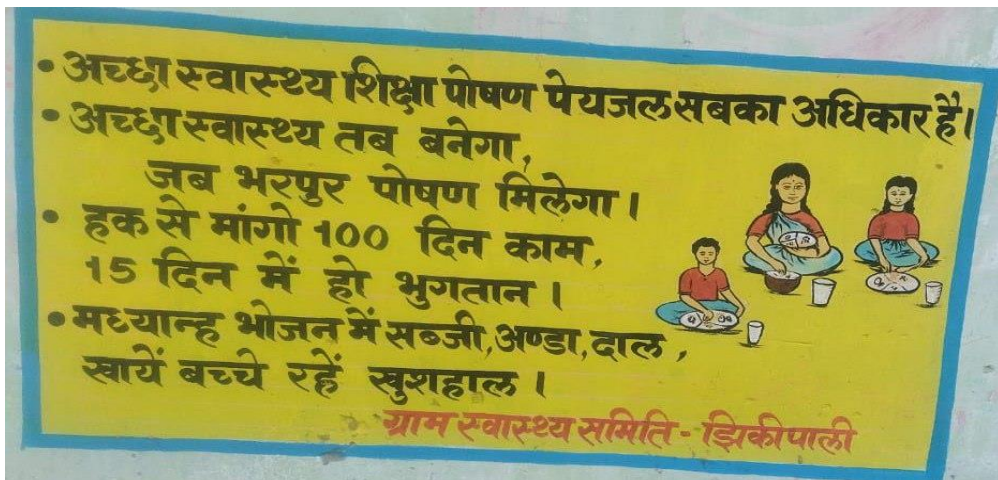 • अच्छा स्वास्थ्य शिक्षा पोषण पेयजल सबका अधिकार है।
• अच्छा स्वास्थ्य तब बनेगा,
जब भरपुर पोषण मिलेगा।
• हक से मांगो 100 दिन काम,
15 दिन में हो भुगतान।
• मध्यान्ह भोजन में सब्जी, अण्डा, दाल,
खायें बच्चे रहें खुशहाल।
ग्राम स्वास्थ्य समिति - झिकीपाली